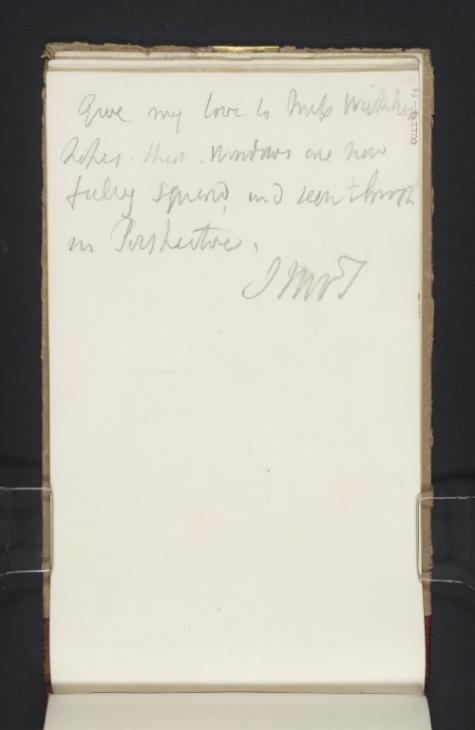 Give my love to Miss
hopes that windows are now
fully squared, and seen through
in Perspective.
JMWT